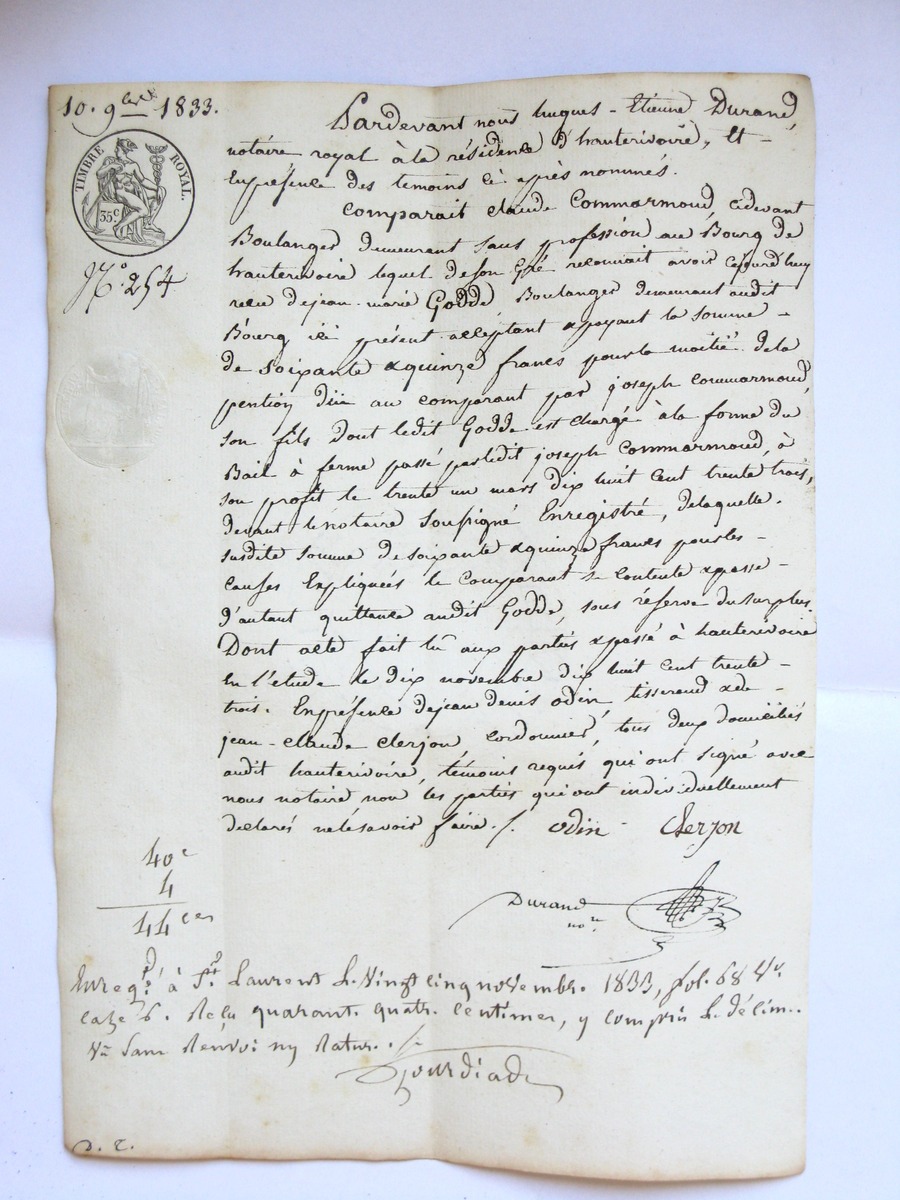 10. 9bre 1833.
TIMBRE ROYAL.
35.c
N.o 254
Pardevant nous hugues - Etienne Durand,
notaire royal à la résidence d'hauterivoire, Et -
En présence des temoins ci après nommés.
Comparait claude Commarmond, cidevant
Boulanger demeurant sans profession au Bourg de
hauterivoire lequel de son Gré reconnait avoir cejourd'huy
recu de jean marie Godde Boulanger demeurant audit
Bourg ici présent acceptant & payant la somme -
de soixante & quinze francs pour la moitié de la
pention düe au comparant par joseph commarmond,
son fils Dont ledit Godde est chargé à la forme du
Bail à ferme passé par ledit joseph Commarmond, à
son profit le trente un mars dix huit cent trente trois,
devant le notaire soussigné Enregistré, delaquelle.
susdite somme de soixante & quinze francs pour les -
causes Expliquées le Comparant se contente & passe -
d'autant quittance audit Godde, sous réserve du surplus.
Dont acte fait lû aux parties & passé à hauterivoire
En l'etude le dix novembre dix huit cent trente -
trois. En présence de jean denis odin, tisserand & de -
jean - claude clerjon, cordonnier, tous deux domiciliés
audit hauterivoire, témoins requis qui ont signé avec
nous notaire non les parties qui ont individuellement
déclaré ne le savoir faire. /. odin Clerjon
40c
4
44ces
Durand
nore
Enregé à St. Laurent le Vingt cinq novembre. 1833, fol. 68 Vo.
case 6. Reçu quarante quatre centimes, y compris le décime.
Vu sans Renvoi ny Rature. /.
Gourdiad
D. C.